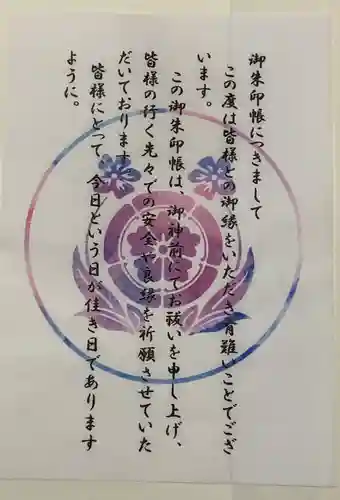 御朱印帳につきまして
この度は皆様との御縁をいただき有難いことでござ
います。
この御朱印帳は、御神前にてお祓いを申し上げ、
皆様の行く先々での安全や良縁を祈願させていた
だいております
皆様にとって、今日という日が佳き日であります
ように。